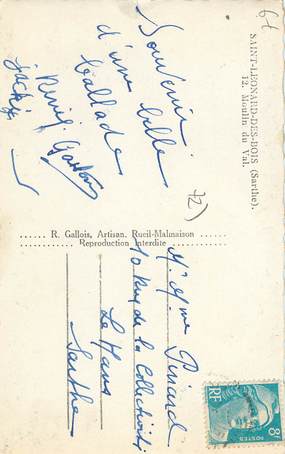 SAINT-LEONARD-DES-BOIS (Sarthe).
12. Moulin du Val.
6f
72)
Souvenir
d'une belle
ballade
Rémy. Gaston
Jacky
R. Gallois, Artisan, Rueil-Malmaison
Reproduction Interdite
Mr Mme Pinard
10 Rue de la Collectivité
Le Mans
Sarthe
8F
POSTES
RF